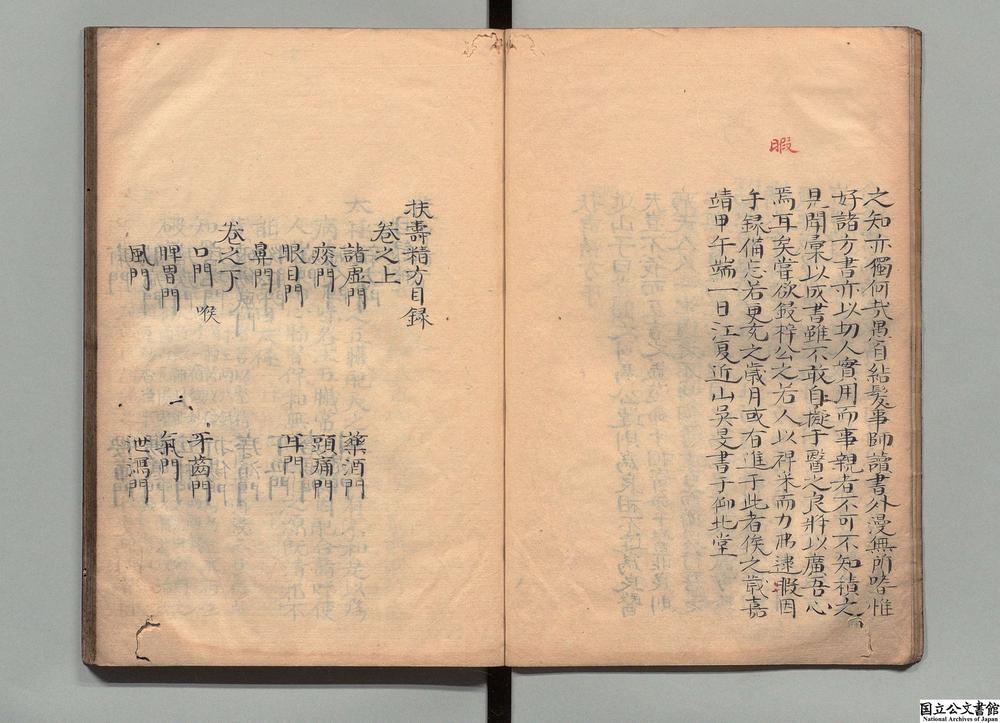 暇
之知亦獨何哉愚自結髮事師讀書外漫無所嗜惟
好諸方書亦以切人實用而事親者不可不知積之
見聞彙以成書雖不敢自擬于醫之良將以廣吾心
焉耳矣嘗欲鋟梓公之若人以裨未而力弗逮暇因
手録備忘若更充之歲月或有進于此者俟之歲嘉
靖甲午端一日江夏近山吳旻書于仰北堂
扶壽精方目録
卷之上
諸虛門 藥酒門
痰門 頭痛門
眼目門 耳門
鼻門
卷之下
口門 喉 牙齒門
脾胃門 氣門
風門 泄瀉門
国立公文書館
National Archives of Japan